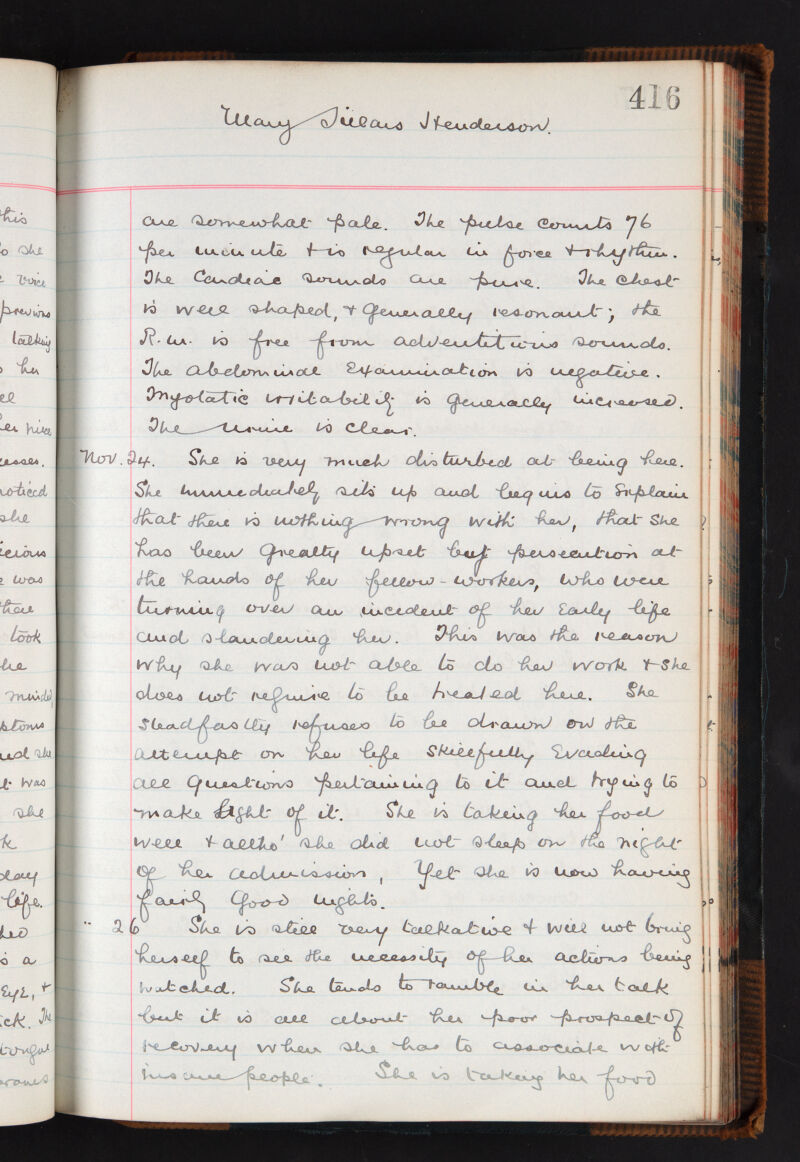 416
Mary Sillars Henderson.
are somewhat pale. The pulse counts 76
per minute + is regular in force + rhythm.
The Cardiac sounds are pure. The chest
is well shaped, + generally resonant; the
R.m. is free from adventitious sounds.
The abdominal Examination is negative.
Myotatic irritability is generally increased.
The urine is clear.
Nov. 24. She is very much disturbed at being here.
She immediately sits up and begins to Explain
that there is nothing wrong with her, that she
has been greatly upset by persecution at
the hands of her fellow-workers, who were
turning over an incident of her Early life
and slandering her. This was the reason
why she was not able to do her work + she
does not require to be treated here. She
steadfastly refuses to be drawn on the
attempt on her life skillfully Evading
all questions pertaining to it and trying to
make light of it. She is taking her food
well + altho' she did not sleep on the night
of her admission, yet she is now having
fairly good nights.
" 26 She is still very talkative + will not bring
herself to see the necessity of her actions being
watched. She tends to ramble in her talk
but it is all about her poor prospect of
recovery when she has to associate with
insane people. She is taking her food
this
so she
voice
previous
talking
her
her niece
noticed
she
was
there
took
he
minded
and she
it was
she
day
life.
is a
EyE, +
The
tongue